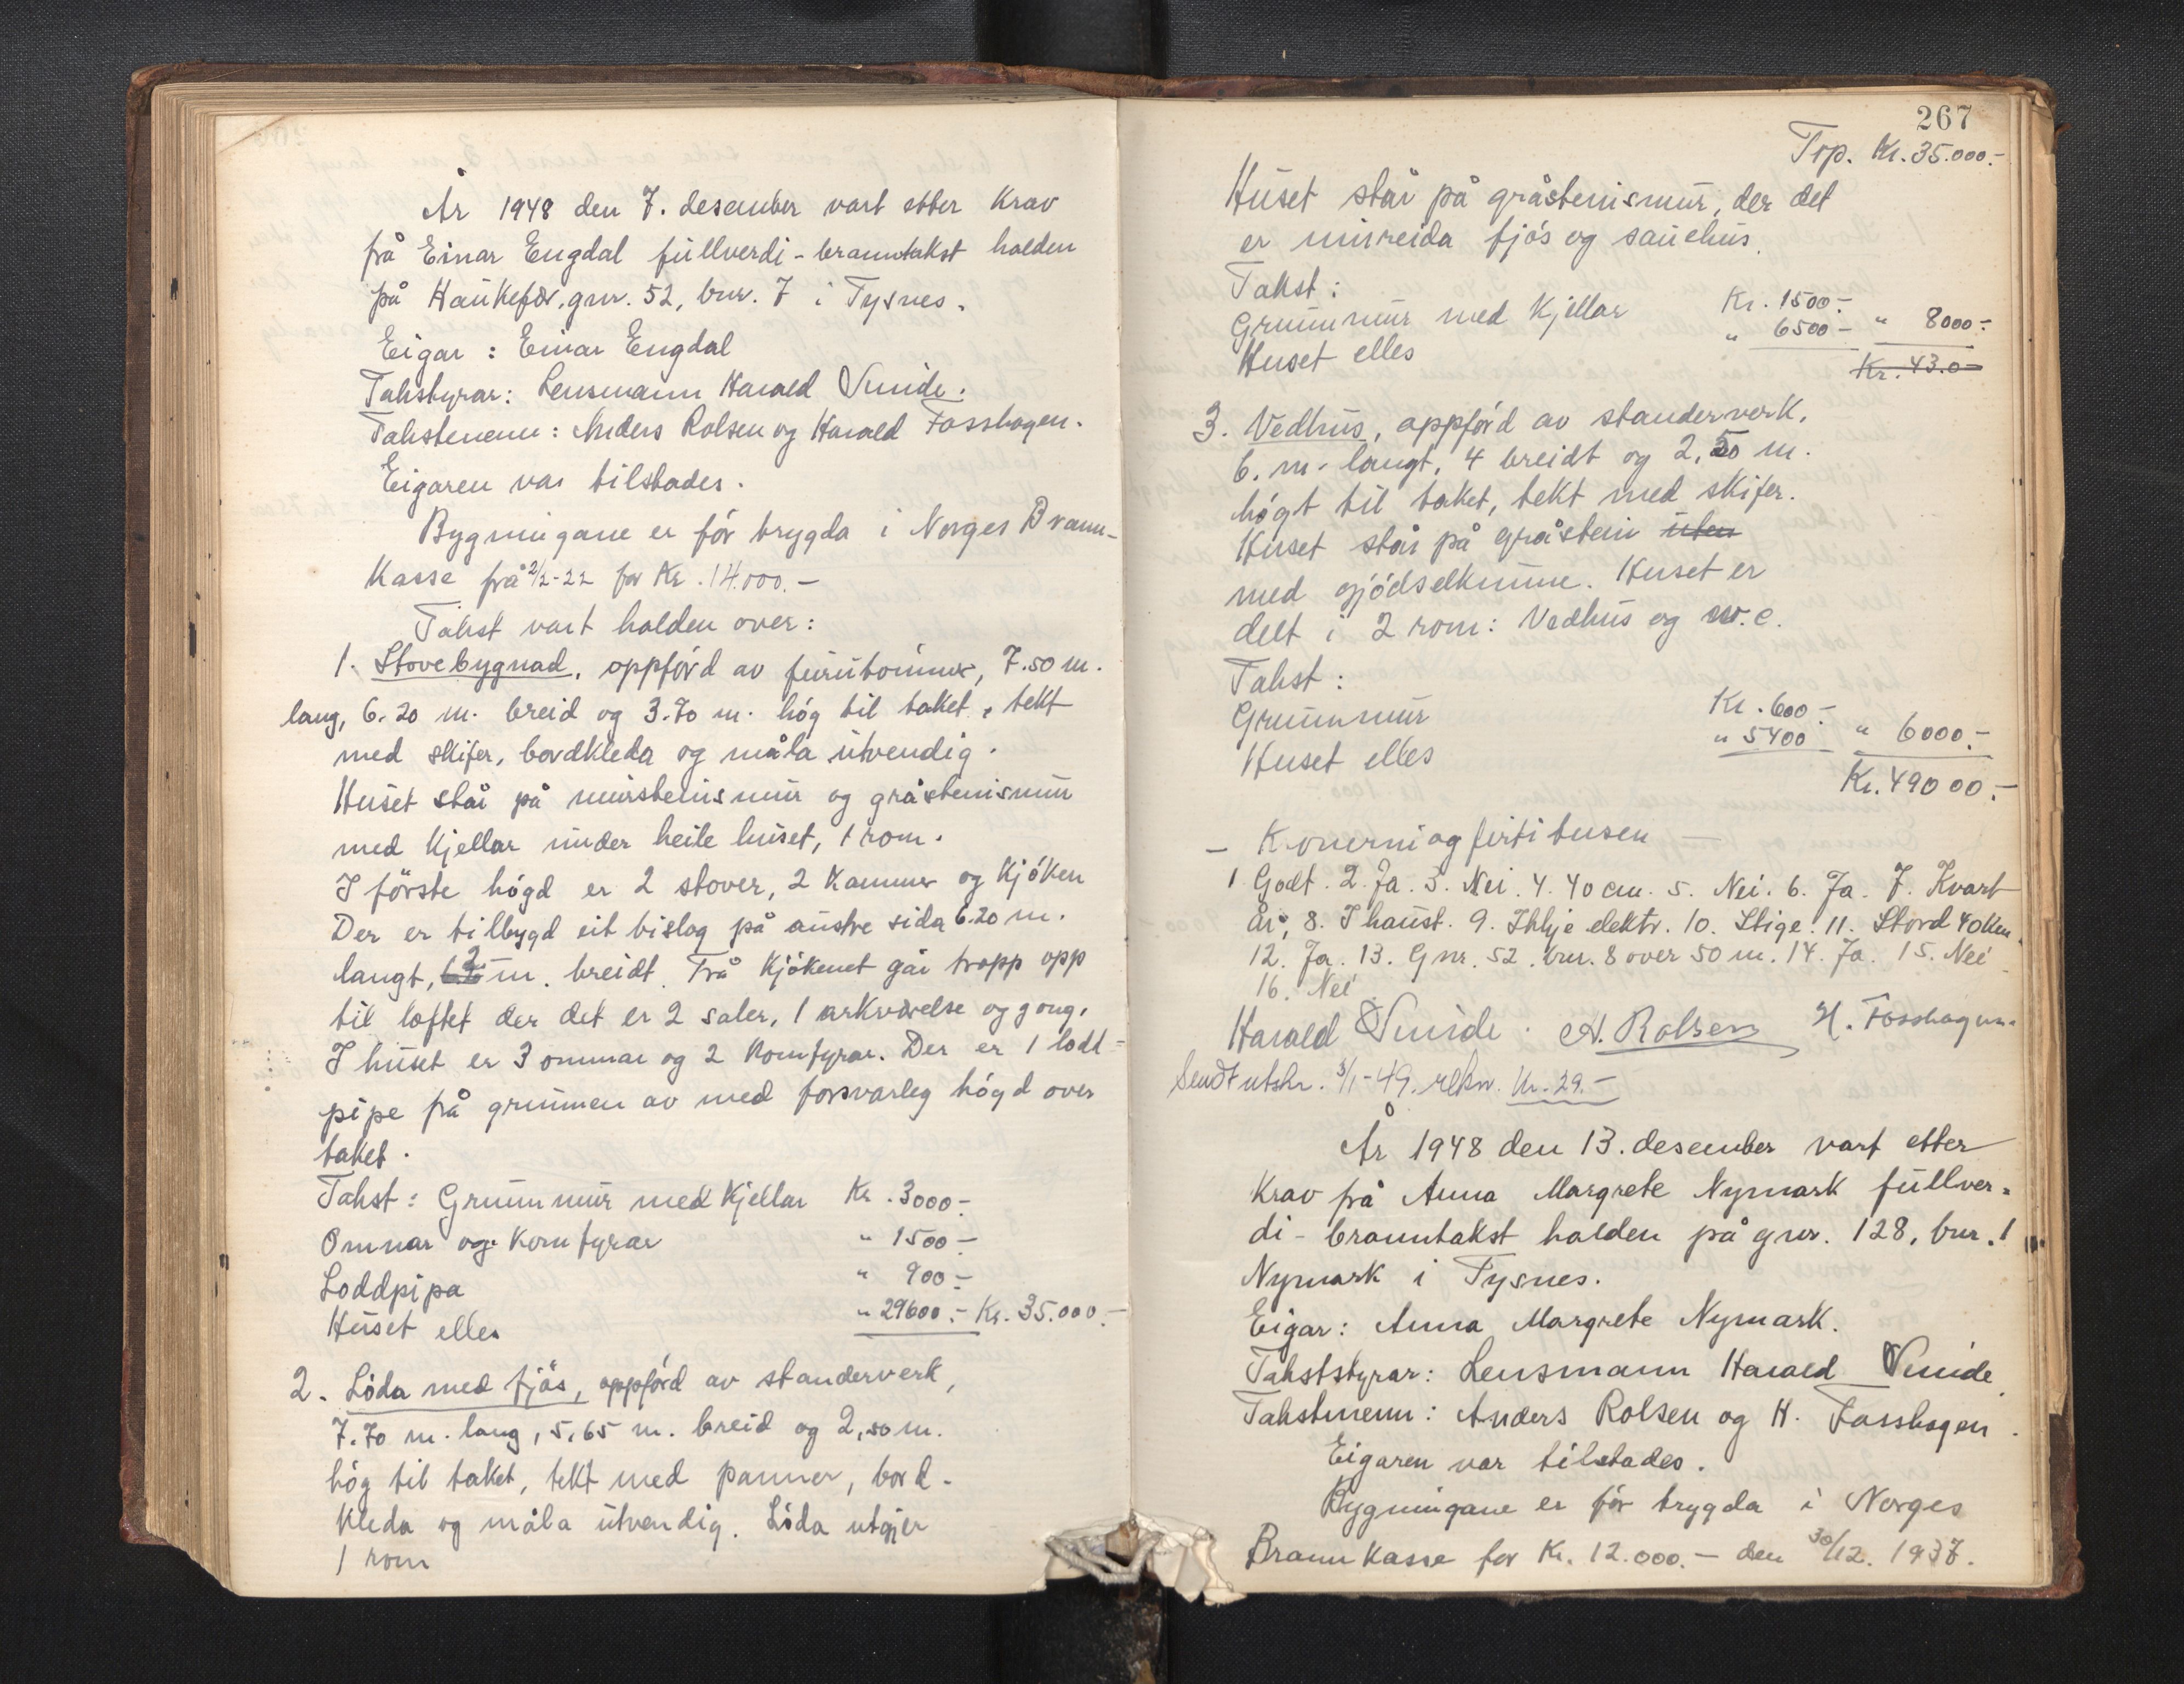 År 1948 den 7. desember vart etter krav
frå Einar Engdal fullverdi-branntakst halden
på Haukefær, gnr. 52, bnr. 7 i Tysnes.
Eigar: Einar Engdal
Takstyrar: Lensmann Harald Sunde.
Takstmenn: Anders Rolsen og Harald Fosshagen.
Eigaren var tilstades.
Bygningane er før trygda i Norges Brann-
kasse frå 2/2-22 for Kr. 14.000.-
Takst vart halden over:
1. Stovebygnad, oppførd av furutømmer, 7.50 m.
lang, 6.20 m. breid og 3.70 m. høg til taket, tekt
med skifer, bordkleda og måla utvendig.
Huset står på murstenismur og gråstenismur
med kjellar under heile huset, 1 rom.
I første høgd er 2 stover, 2 kammer og kjøken
Der er tilbygd eit bislag på austre sida 6.20 m.
langt, 2 m. breidt. Frå kjøkenet går trapp opp
til loftet der det er 2 saler, 1 arkværelse og gong.
I huset er 3 omnar og 2 komfyrar. Der er 1 lodd-
pipe frå grunnen av med forsvarleg høgd over
taket.
Takst: Grunnmur med kjellar Kr. 3000.-
Omnar og komfyrar " 1500.-
Loddpipa " 900.-
Huset elles " 29600.- Kr. 35.000.-
2. Løda med fjøs, oppførd av standerverk,
7.70 m. lang, 5.65 m. breid og 2,50 m.
høg til taket, tekt med panner, bord-
kleda og måla utvendig. Løda utgjer
1 rom
267
Trp. Kr. 35.000.-
Huset står på gråstenismur, der det
er innreida fjøs og sauehus.
Takst:
Grunnmur med kjellar Kr. 1500.-
Huset elles " 6500.- " 8000.-
Kr. 43.0-
3. Vedhus, oppførd av standerverk,
6. m. langt, 4 breidt og 2,50 m.
høgt til taket, tekt med skifer.
Huset står på gråstein uten
med gjødselkumme. Huset er
delt i 2 rom: Vedhus og w.c.
Takst:
Grunnmur Kr. 600.-
Huset elles " 5400 " 6000.-
Kr. 49000.-
- Kronerniogførtitusen -
1 Godt. 2. Ja. 3. Nei. 4. 40 cm. 5. Nei. 6. Ja. 7. Kvart
år, 8. I haust. 9. Ikkje elektr. 10. Stige. 11. Stord 40km.
12. Ja. 13. Gnr. 52. bnr. 8 over 50 m. 14. Ja. 15. Nei
16. Nei
Harald Sunde. A. Rolsen H. Fosshagen.
Sendt utskr. 3/1-49. rekn. Kr. 29.-
År 1948 den 13. desember vart etter
krav frå Anna Margrete Nymark fullver-
di-branntakst halden på gnr. 128, bnr. 1
Nymark i Tysnes.
Eigar: Anna Margrete Nymark.
Takststyrar: Lensmann Harald Sunde.
Takstmenn: Anders Rolsen og H. Fosshagen.
Eigaren var tilstades.
Bygningane er før trygda i Norges
Brannkasse for Kr. 12.000.- den 30/12. 1937.